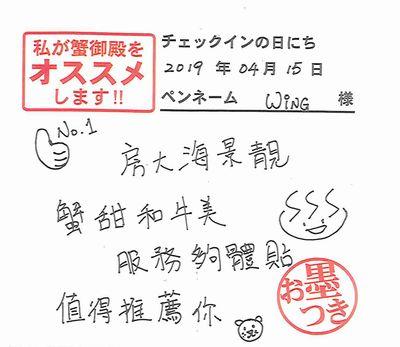 私が蟹御殿を
オススメ
します!!
チェックインの日にち
2019 年 04月 15日
ペンネーム WiNG 様
No.1
房大海景靚
蟹甜和牛美
服務夠體貼
值得推薦你
お墨
つき